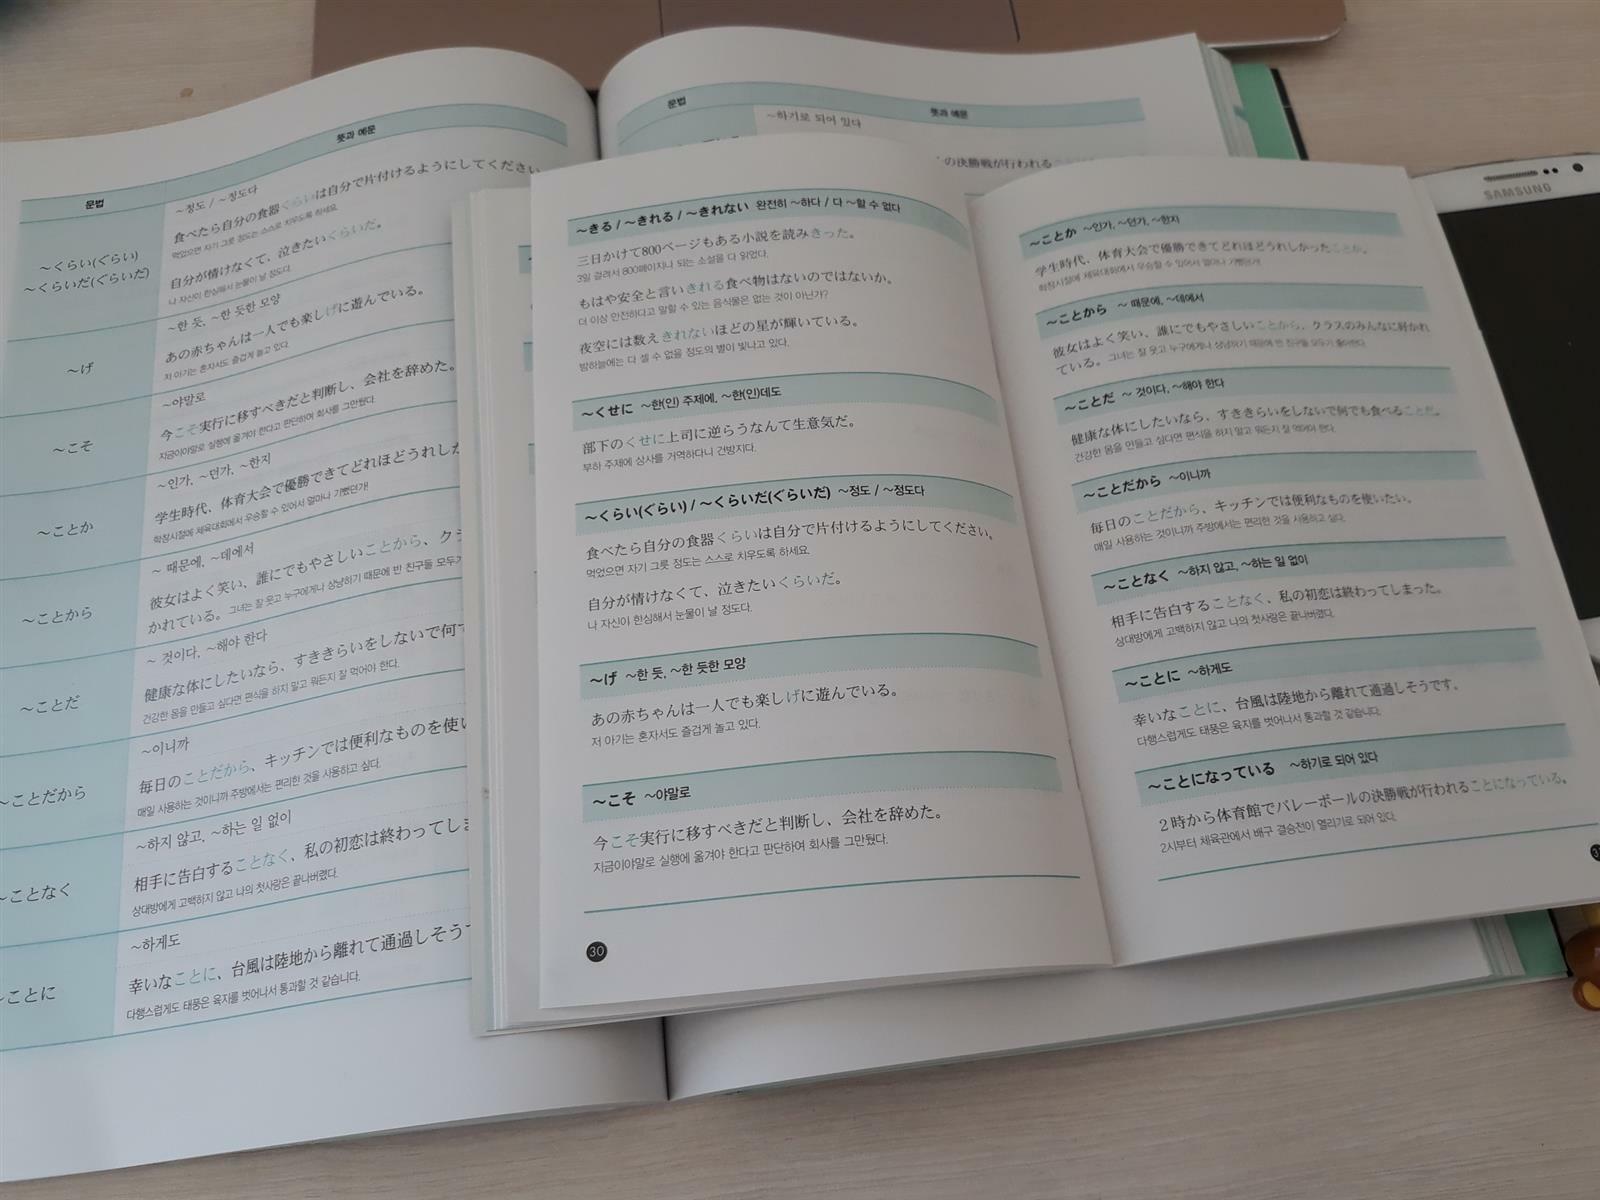 문법
뜻과 예문
~くらい(ぐらい)
~くらいだ(ぐらいだ)
~정도 / ~정도다
食べたら自分の食器くらいは自分で片付けるようにしてください
먹었으면 자기 그릇 정도는 스스로 치우도록 하세요.
自分が情けなくて、泣きたいくらいだ。
나 자신이 한심해서 눈물이 날 정도다.
~げ
~한 듯, ~한 듯한 모양
あの赤ちゃんは一人でも楽しげに遊んでいる。
저 아기는 혼자서도 즐겁게 놀고 있다.
~こそ
~야말로
今こそ実行に移すべきだと判断し、会社を辞めた。
지금이야말로 실행에 옮겨야 한다고 판단하여 회사를 그만뒀다.
~ことか
~인가, ~던가, ~한지
学生時代、体育大会で優勝できてどれほどうれしか
학창시절에 체육대회에서 우승할 수 있어서 얼마나 기뻤던가!
~ことから
~ 때문에, ~데에서
彼女はよく笑い、誰にでもやさしいことから、クラ
かれている。그녀는 잘 웃고 누구에게나 상냥하기 때문에 반 친구들 모두가
~ことだ
~ 것이다, ~해야 한다
健康な体にしたいなら、すききらいをしないで何で
건강한 몸을 만들고 싶다면 편식을 하지 말고 뭐든지 잘 먹어야 한다.
~ことだから
~이니까
毎日のことだから、キッチンでは便利なものを使い
매일 사용하는 것이니까 주방에서는 편리한 것을 사용하고 싶다.
~ことなく
~하지 않고, ~하는 일 없이
相手に告白することなく、私の初恋は終わってしま
상대방에게 고백하지 않고 나의 첫사랑은 끝나버렸다.
~ことに
~하게도
幸いなことに、台風は陸地から離れて通過しそうで
다행스럽게도 태풍은 육지를 벗어나서 통과할 것 같습니다.
문법
뜻과 예문
~하기로 되어 있다
の決勝戦が行われる
~きる / ~きれる / ~きれない 완전히 ~하다 / 다 ~할 수 없다
三日かけて800ページもある小説を読みきった。
3일 걸려서 800페이지나 되는 소설을 다 읽었다.
もはや安全と言いきれる食べ物はないのではないか。
더 이상 안전하다고 말할 수 있는 음식물은 없는 것이 아닌가?
夜空には数えきれないほどの星が輝いている。
밤하늘에는 다 셀 수 없을 정도의 별이 빛나고 있다.
~くせに ~한(인) 주제에, ~한(인)데도
部下のくせに上司に逆らうなんて生意気だ。
부하 주제에 상사를 거역하다니 건방지다.
~くらい(ぐらい) / ~くらいだ(ぐらいだ) ~정도 / ~정도다
食べたら自分の食器くらいは自分で片付けるようにしてください。
먹었으면 자기 그릇 정도는 스스로 치우도록 하세요.
自分が情けなくて、泣きたいくらいだ。
나 자신이 한심해서 눈물이 날 정도다.
~げ ~한 듯, ~한 듯한 모양
あの赤ちゃんは一人でも楽しげに遊んでいる。
저 아기는 혼자서도 즐겁게 놀고 있다.
~こそ ~야말로
今こそ実行に移すべきだと判断し、会社を辞めた。
지금이야말로 실행에 옮겨야 한다고 판단하여 회사를 그만뒀다.
30
~ことか ~인가, ~던가, ~한지
学生時代、体育大会で優勝できてどれほどうれしかったことか。
학창시절에 체육대회에서 우승할 수 있어서 얼마나 기뻤던가!
~ことから ~ 때문에, ~데에서
彼女はよく笑い、誰にでもやさしいことから、クラスのみんなに好かれ
ている。그녀는 잘 웃고 누구에게나 상냥하기 때문에 반 친구들 모두가 좋아한다.
~ことだ ~ 것이다, ~해야 한다
健康な体にしたいなら、すききらいをしないで何でも食べることだ。
건강한 몸을 만들고 싶다면 편식을 하지 말고 뭐든지 잘 먹어야 한다.
~ことだから ~이니까
毎日のことだから、キッチンでは便利なものを使いたい。
매일 사용하는 것이니까 주방에서는 편리한 것을 사용하고 싶다.
~ことなく ~하지 않고, ~하는 일 없이
相手に告白することなく、私の初恋は終わってしまった。
상대방에게 고백하지 않고 나의 첫사랑은 끝나버렸다.
~ことに ~하게도
幸いなことに、台風は陸地から離れて通過しそうです。
다행스럽게도 태풍은 육지를 벗어나서 통과할 것 같습니다.
~ことになっている ~하기로 되어 있다
２時から体育館でバレーボールの決勝戦が行われることになっている。
2시부터 체육관에서 배구 결승전이 열리기로 되어 있다.
SAMSUNG